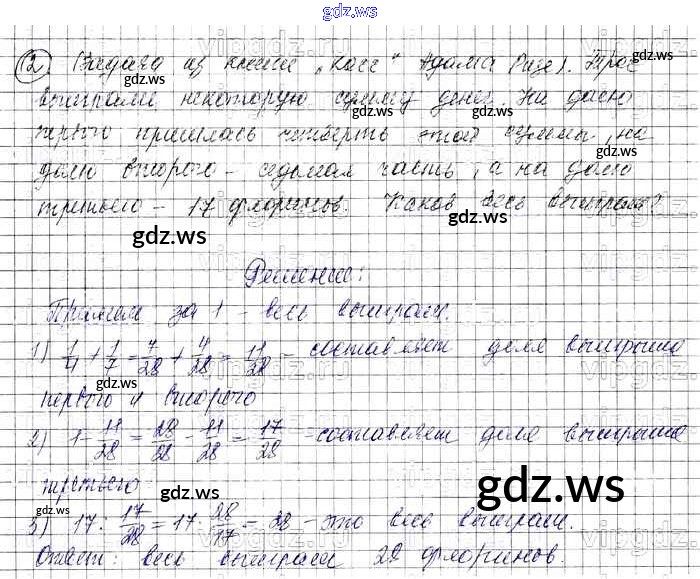 gdz.ws
② Задача из книги „Косс“ Адама Ризе). Трое
выиграли некоторую сумму денег. На долю
первого пришлась четверть этой суммы, на
долю второго – седьмая часть, а на долю
третьего – 17 флоринов. Каков весь выигрыш?
Решение:
Примем за 1 – весь выигрыш.
1) 1/4 + 1/7 = 7/28 + 4/28 = 11/28 – составляет доля выигрыша
первого и второго
2) 1 - 11/28 = 28/28 - 11/28 = 17/28 – составляет доля выигрыша
третьего
3) 17 : 17/28 = 17 · 28/17 = 28 – это весь выигрыш.
Ответ: весь выигрыш 28 флоринов.